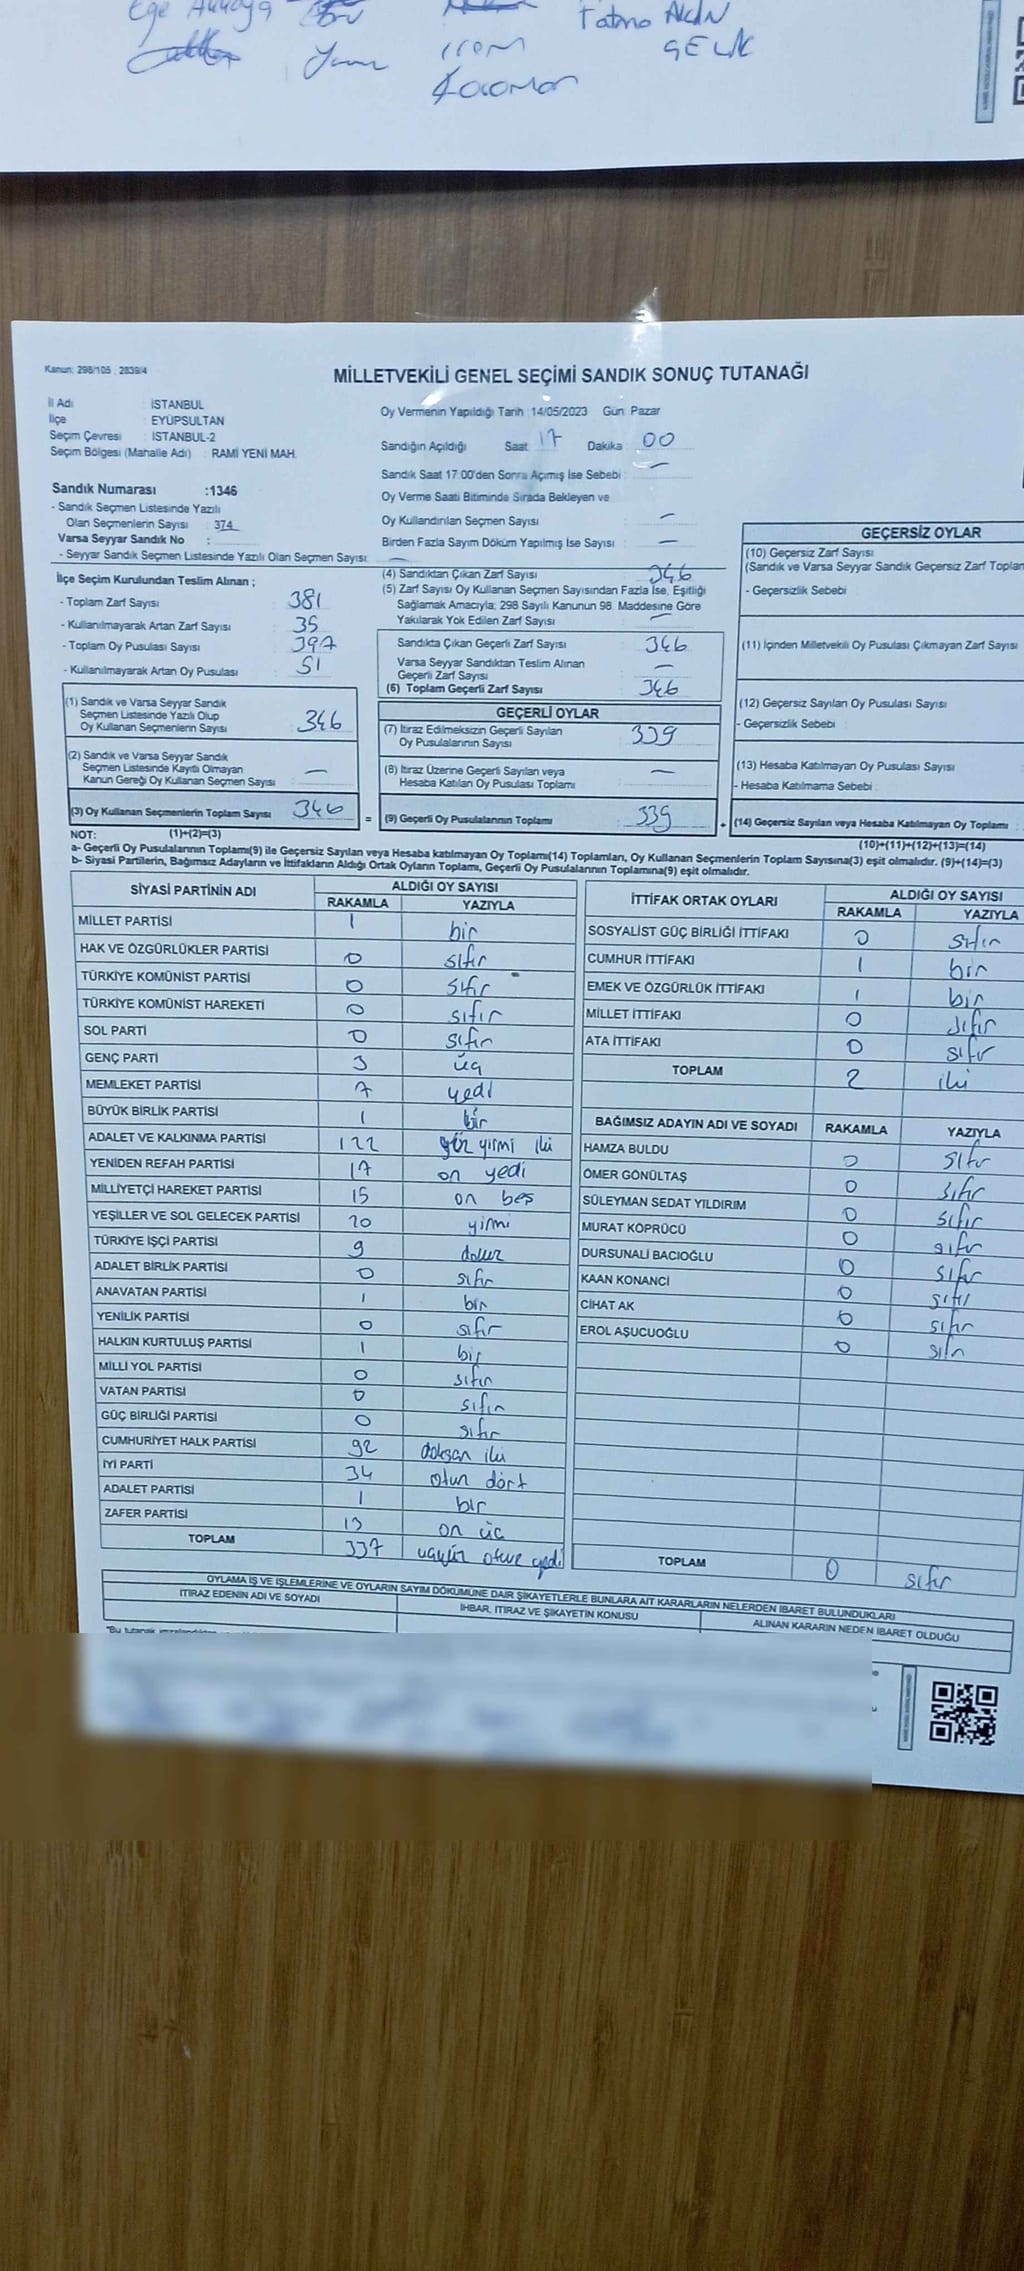 Ege
Fatma AKIN
Yam İrem ÇELİK
Karaman
Kanun: 298/105 , 2839/4
MİLLETVEKİLİ GENEL SEÇİMİ SANDIK SONUÇ TUTANAĞI
İl Adı : İSTANBUL
İlçe : EYÜPSULTAN
Seçim Çevresi : İSTANBUL-2
Seçim Bölgesi (Mahalle Adı) : RAMİ YENİ MAH.
Oy Vermenin Yapıldığı Tarih :14/05/2023 Gün: Pazar
Sandığın Açıldığı Saat 17 Dakika : 00
Sandık Saat 17:00'den Sonra Açımış İse Sebebi : —
Oy Verme Saati Bitiminde Sırada Bekleyen ve
Oy Kullandırılan Seçmen Sayısı : —
Birden Fazla Sayım Döküm Yapılmış İse Sayısı : —
Sandık Numarası :1346
- Sandık Seçmen Listesinde Yazılı
Olan Seçmenlerin Sayısı : 374
Varsa Seyyar Sandık No :
- Seyyar Sandık Seçmen Listesinde Yazılı Olan Seçmen Sayısı: —
İlçe Seçim Kurulundan Teslim Alınan ;
- Toplam Zarf Sayısı : 381
- Kullanılmayarak Artan Zarf Sayısı : 35
- Toplam Oy Pusulası Sayısı : 397
- Kullanılmayarak Artan Oy Pusulası : 51
(1) Sandık ve Varsa Seyyar Sandık
Seçmen Listesinde Yazılı Olup
Oy Kullanan Seçmenlerin Sayısı : 346
(2) Sandık ve Varsa Seyyar Sandık
Seçmen Listesinde Kayıtlı Olmayan
Kanun Gereği Oy Kullanan Seçmen Sayısı : —
(3) Oy Kullanan Seçmenlerin Toplam Sayısı : 346
(4) Sandıktan Çıkan Zarf Sayısı : 346
(5) Zarf Sayısı Oy Kullanan Seçmen Sayısından Fazla İse, Eşitliği
Sağlamak Amacıyla; 298 Sayılı Kanunun 98. Maddesine Göre
Yakılarak Yok Edilen Zarf Sayısı : —
Sandıkta Çıkan Geçerli Zarf Sayısı : 346
Varsa Seyyar Sandıktan Teslim Alınan
Geçerli Zarf Sayısı : —
(6) Toplam Geçerli Zarf Sayısı : 346
GEÇERLİ OYLAR
(7) İtiraz Edilmeksizin Geçerli Sayılan
Oy Pusulalarının Sayısı : 339
(8) İtiraz Üzerine Geçerli Sayılan veya
Hesaba Katılan Oy Pusulası Toplamı : —
= (9) Geçerli Oy Pusulalarının Toplamı : 339
GEÇERSİZ OYLAR
(10) Geçersiz Zarf Sayısı
(Sandık ve Varsa Seyyar Sandık Geçersiz Zarf Toplam
- Geçersizlik Sebebi :
(11) İçinden Milletvekili Oy Pusulası Çıkmayan Zarf Sayısı
(12) Geçersiz Sayılan Oy Pusulası Sayısı
- Geçersizlik Sebebi :
(13) Hesaba Katılmayan Oy Pusulası Sayısı
- Hesaba Katılmama Sebebi :
+ (14) Geçersiz Sayılan veya Hesaba Katılmayan Oy Toplamı :
NOT: (1)+(2)=(3) (10)+(11)+(12)+(13)=(14)
a- Geçerli Oy Pusulalarının Toplamı(9) ile Geçersiz Sayılan veya Hesaba katılmayan Oy Toplamı(14) Toplamları, Oy Kullanan Seçmenlerin Toplam Sayısına(3) eşit olmalıdır. (9)+(14)=(3)
b- Siyasi Partilerin, Bağımsız Adayların ve İttifakların Aldığı Ortak Oyların Toplamı, Geçerli Oy Pusulalarının Toplamına(9) eşit olmalıdır.
SİYASİ PARTİNİN ADI ALDIĞI OY SAYISI
RAKAMLA YAZIYLA
MİLLET PARTİSİ 1 bir
HAK VE ÖZGÜRLÜKLER PARTİSİ 0 sıfır
TÜRKİYE KOMÜNİST PARTİSİ 0 sıfır
TÜRKİYE KOMÜNİST HAREKETİ 0 sıfır
SOL PARTİ 0 sıfır
GENÇ PARTİ 3 üç
MEMLEKET PARTİSİ 7 yedi
BÜYÜK BİRLİK PARTİSİ 1 bir
ADALET VE KALKINMA PARTİSİ 122 yüz yirmi iki
YENİDEN REFAH PARTİSİ 17 on yedi
MİLLİYETÇİ HAREKET PARTİSİ 15 on beş
YEŞİLLER VE SOL GELECEK PARTİSİ 20 yirmi
TÜRKİYE İŞÇİ PARTİSİ 9 dokuz
ADALET BİRLİK PARTİSİ 0 sıfır
ANAVATAN PARTİSİ 1 bir
YENİLİK PARTİSİ 0 sıfır
HALKIN KURTULUŞ PARTİSİ 1 bir
MİLLİ YOL PARTİSİ 0 sıfır
VATAN PARTİSİ 0 sıfır
GÜÇ BİRLİĞİ PARTİSİ 0 sıfır
CUMHURİYET HALK PARTİSİ 92 doksan iki
İYİ PARTİ 34 otuz dört
ADALET PARTİSİ 1 bir
ZAFER PARTİSİ 13 on üç
TOPLAM 337 üçyüz otuz yedi
İTTİFAK ORTAK OYLARI ALDIĞI OY SAYISI
RAKAMLA YAZIYLA
SOSYALİST GÜÇ BİRLİĞİ İTTİFAKI 0 sıfır
CUMHUR İTTİFAKI 1 bir
EMEK VE ÖZGÜRLÜK İTTİFAKI 1 bir
MİLLET İTTİFAKI 0 sıfır
ATA İTTİFAKI 0 sıfır
TOPLAM 2 iki
BAĞIMSIZ ADAYIN ADI VE SOYADI RAKAMLA YAZIYLA
HAMZA BULDU 0 sıfır
ÖMER GÖNÜLTAŞ 0 sıfır
SÜLEYMAN SEDAT YILDIRIM 0 sıfır
MURAT KÖPRÜCÜ 0 sıfır
DURSUNALİ BACIOĞLU 0 sıfır
KAAN KONANCİ 0 sıfır
CİHAT AK 0 sıfır
EROL AŞUCUOĞLU 0 sıfır
TOPLAM 0 sıfır
OYLAMA İŞ VE İŞLEMLERİNE VE OYLARIN SAYIM DÖKÜMÜNE DAİR ŞİKAYETLERLE BUNLARA AİT KARARLARIN NELERDEN İBARET BULUNDUKLARI
İTİRAZ EDENİN ADI VE SOYADI İHBAR, İTİRAZ VE ŞİKAYETİN KONUSU ALINAN KARARIN NEDEN İBARET OLDUĞU